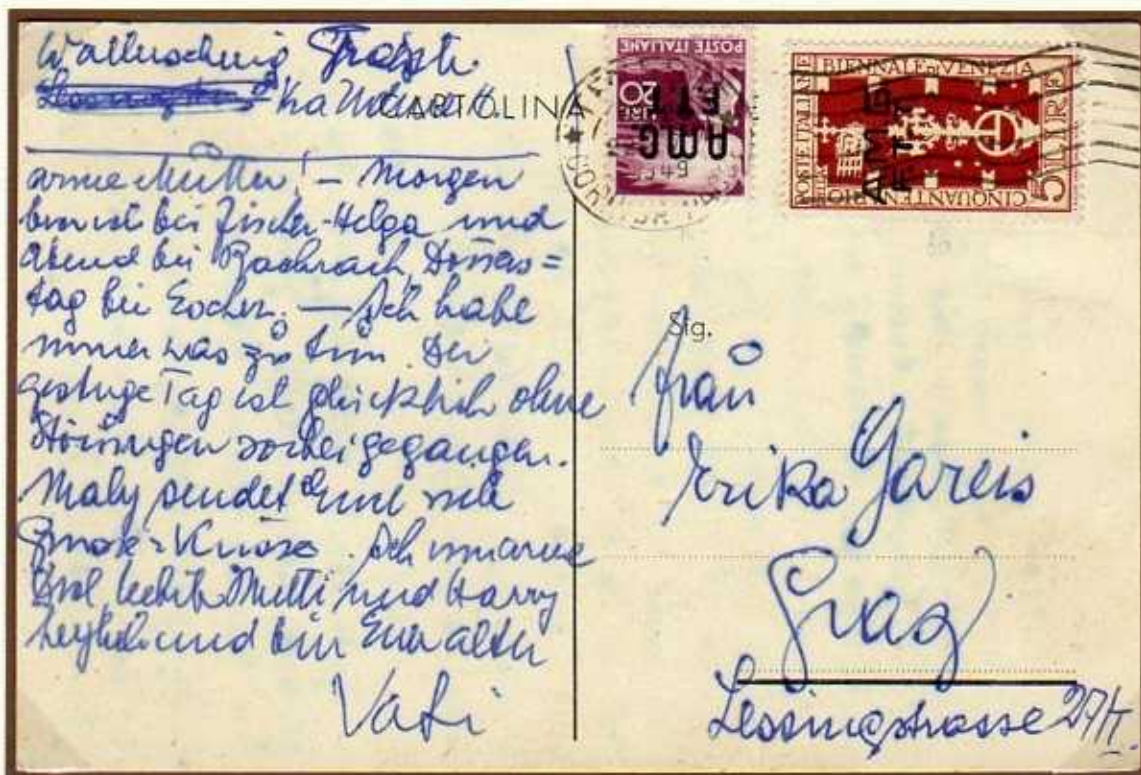 Triest.
CARTOLINA
arme Mutter! – Morgen
bin ich bei Fischer-Helga und
abend bei Bachrach, Donners=
tag bei Locher. — Ich habe
immer was zu tun. Der
gestrige Tag ist glücklich ohne
Störungen vorbeigegangen.
Maly sendet Euch viele
Ich umarme
Dich, liebste Mutti und Harry
herzlich und bin Euer alter
Vati
POSTE ITALIANE
LIRE 20
AMG
FTT
1949
POSTE ITALIANE
BIENNALE DI VENEZIA
CINQUANTENARIO
5 LIRE
AMG
FTT
Sig.
Frau
Erika Gareis
Graz
Lessingstrasse 27/I.